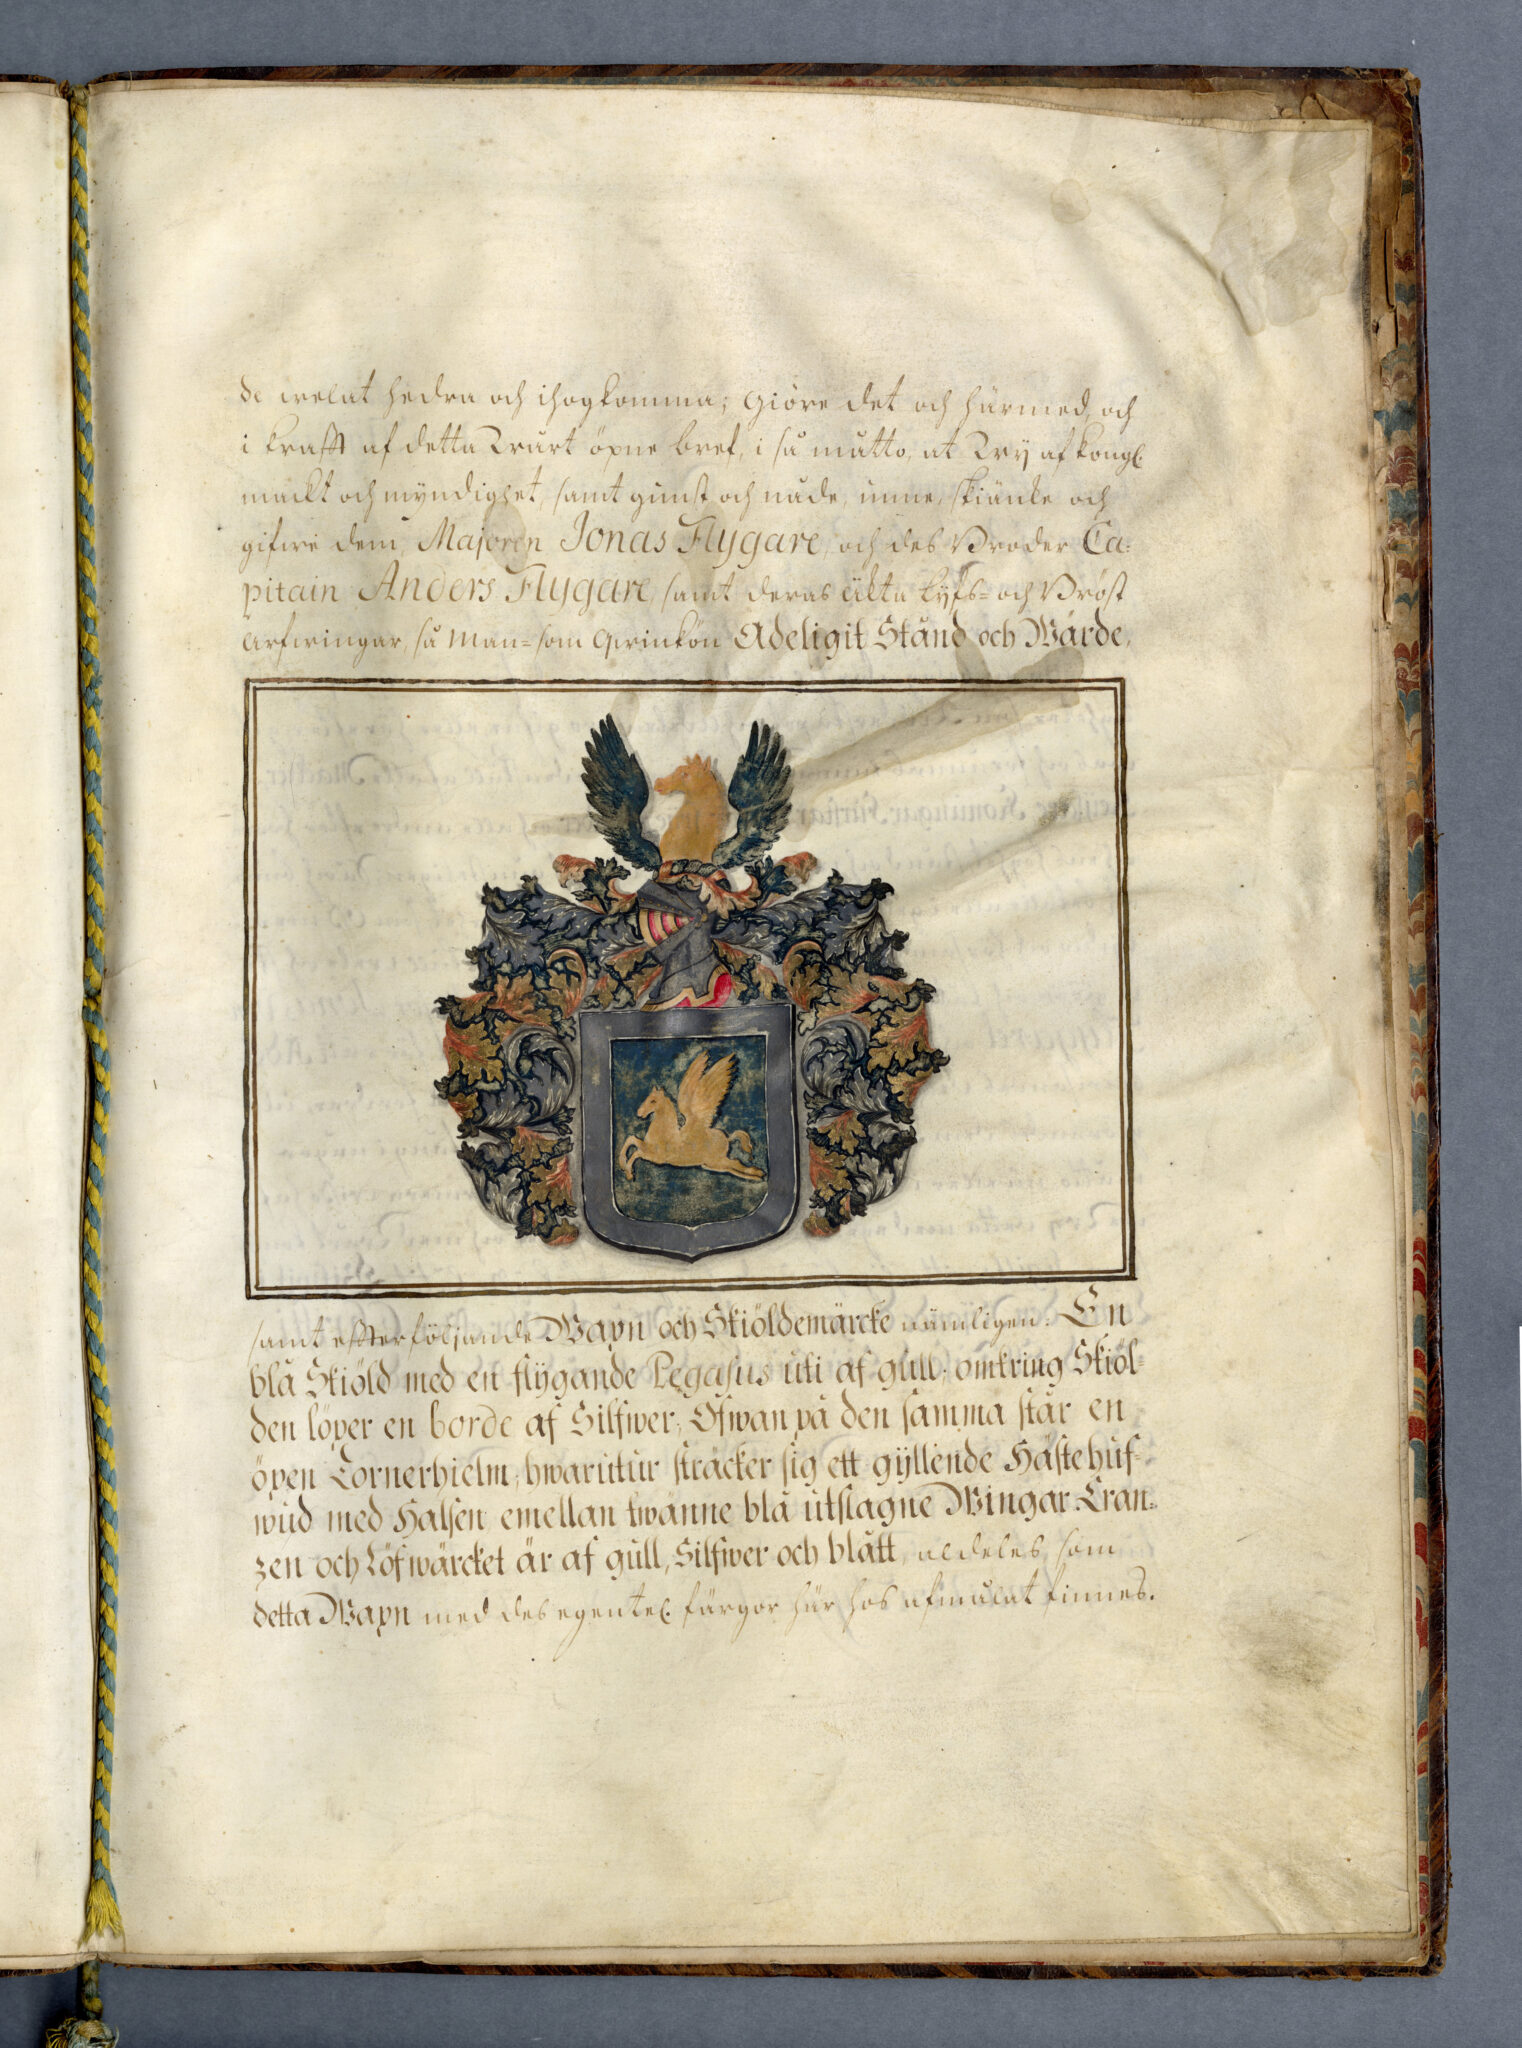 de welat hedra och ihogkomma; Giöre det och härmed, och
i krafft af detta Wårt öpne bref, i så måtto, at Wy af Kongl.
mackt och myndighet, samt gunst och nåde, unne, skiänke och
gifwe dem, Majoren Jonas Flygare, och des Broder Ca-
pitain Anders Flygare, samt deras äkta Lyfs- och Bröst
Arfwingar, så Man- som Qwinkön Adeligit Stånd och Wärde,
samt effterföljande Wapn och Skiöldemärcke nämligen: En
blå Skiöld med en flÿgande Pegasus uti af gull; omkring Skiöl-
den löper en borde af Silfwer; Ofwan på den samma står en
öpen Tornerhielm, hwarutur sträcker sig ett gÿllende Hästehuf-
wud med Halsen emellan twänne blå utslagne Wingar. Cran-
zen och Löfwärcket är af gull, Silfwer och blått, aldeles som
detta Wapn med des egentel. färgor här hos afmålat finnes.